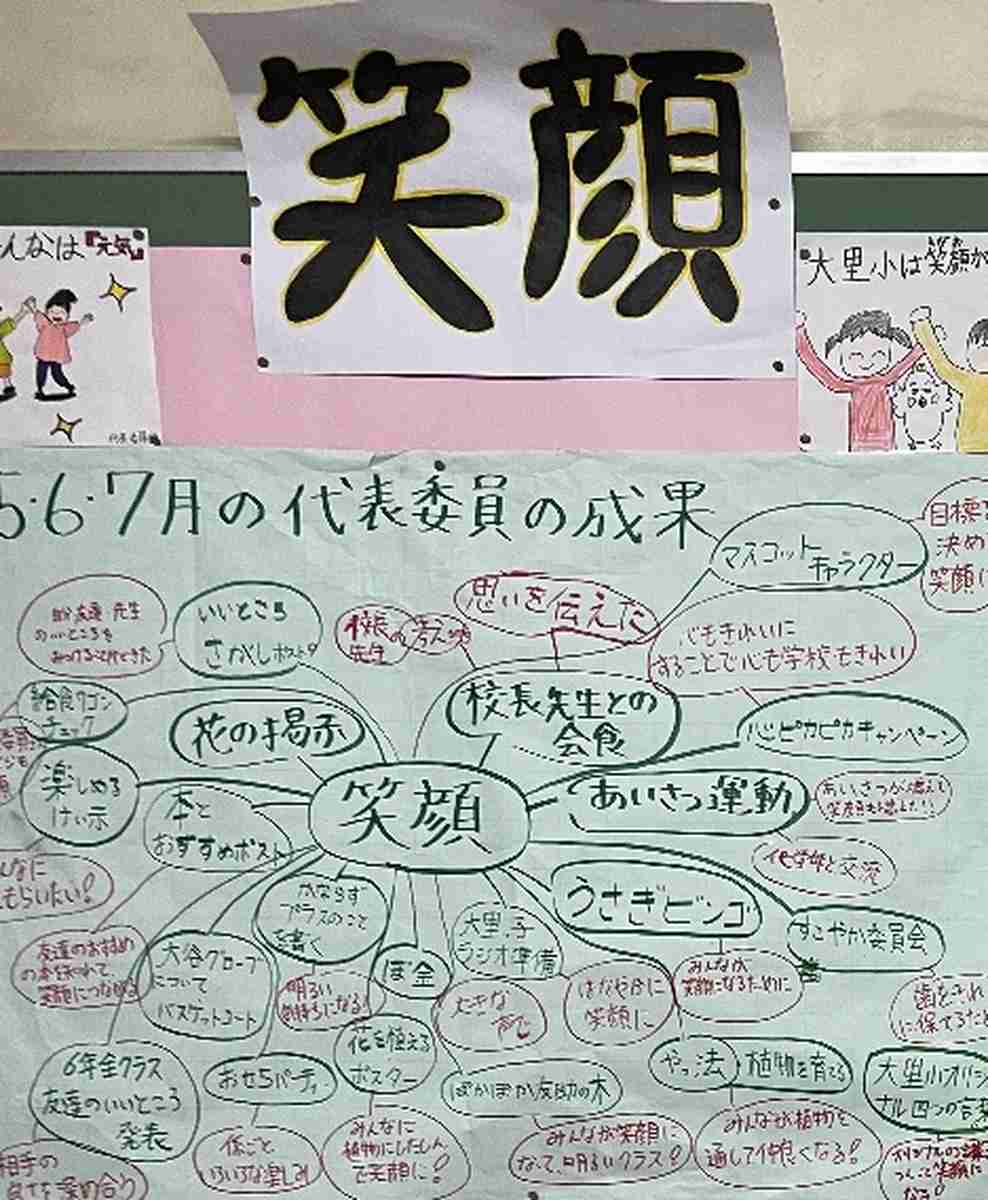 笑顔
んなは『元気』
大里小は笑顔が
5・6・7月の代表委員の成果
マスコット
キャラクター
目標
決め
笑顔に
思いを伝えた
校長
先生
の考え
いいところ
さがしポスト
先生
のいいところを
みつけることができた
心もきれいに
することで心も学校もきれい
給食ワゴン
チェック
花の掲示
校長先生との
会食
ピカピカキャンペーン
楽しめる
けい示
笑顔
あいさつ運動
あいさつが増えて
笑顔も増えた!!
本と
おすすめポスト
交流
んなに
もらいたい!
かならず
プラスのこと
を書く
うさぎビンゴ
すこやか委員会
友達のおすすめ
の本を知れて、
笑顔につながる
大谷グローブ
について
バスケットコート
ぼ金
大里っ子
ラジオ準備
明るい
気持ちになる!
大きな
声で
はなやかに
笑顔に
みんなが
笑顔になるために
歯をきれ
に保てるため
花を植える
ポスター
6年全クラス
友達のいいところ
発表
おせちパーティー
ぽかぽか友助の木
やっ法
植物を育てる
大里小オリジ
ナル四つの言葉
係ごと
いろいろな楽しみ
みんなに
植物にしたしん
で笑顔に!
みんなが笑顔に
なって、明るいクラス!
みんなが植物を
通して仲良くなる!
相手の
良さを深め合う